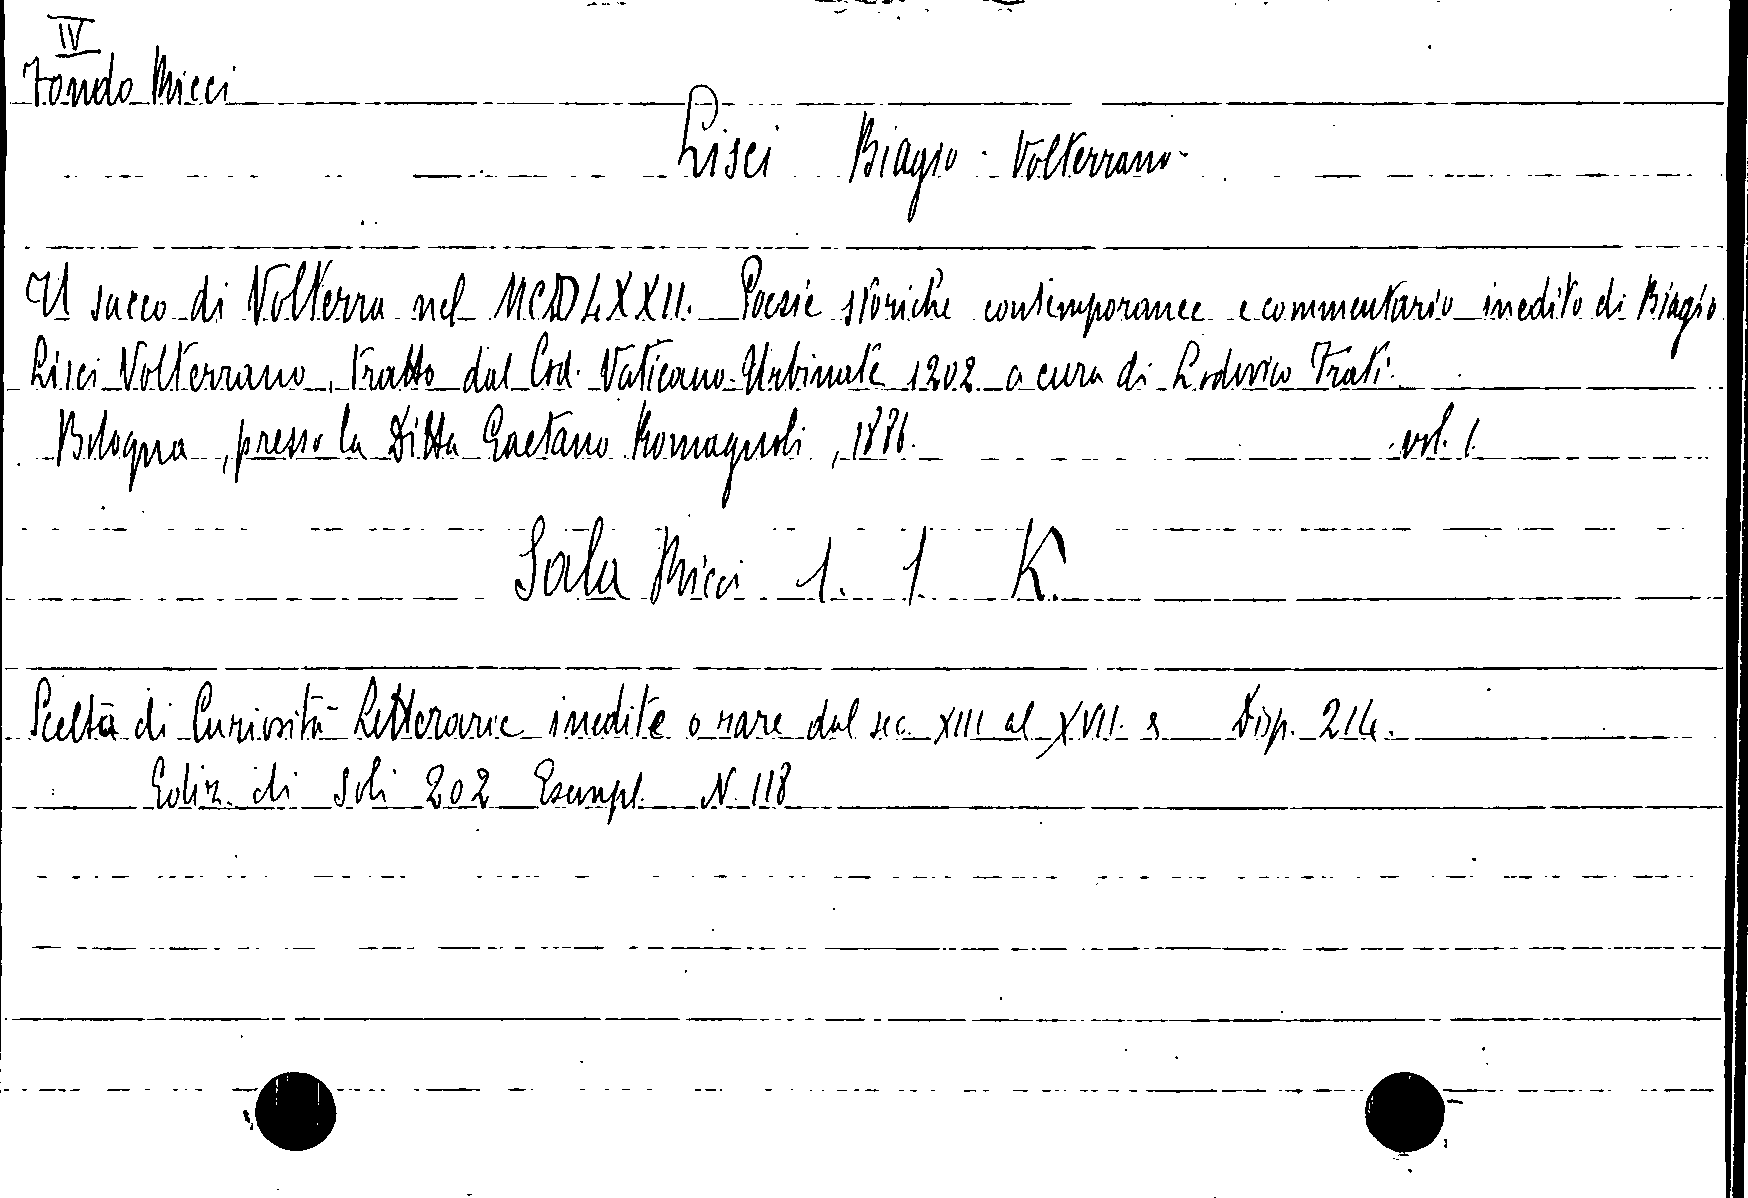 IV
Fondo Ricci
Lisci Biagio - Volterrano -
Il sacco di Volterra nel MCDLXXII. Poesie storiche contemporanee e commentario inedito di Biagio
Lisci Volterrano, tratto dal Cod. Vaticano-Urbinate 1202 a cura di Lodovico Frati.
Bologna, presso la Ditta Gaetano Romagnoli, 1886. vol. 1.
Sala Ricci 1. 1. K.
Scelta di Curiosità Letterarie inedite o rare dal sec. XIII al XVII. Disp. 214.
Ediz. di soli 202 Esempl. N. 118